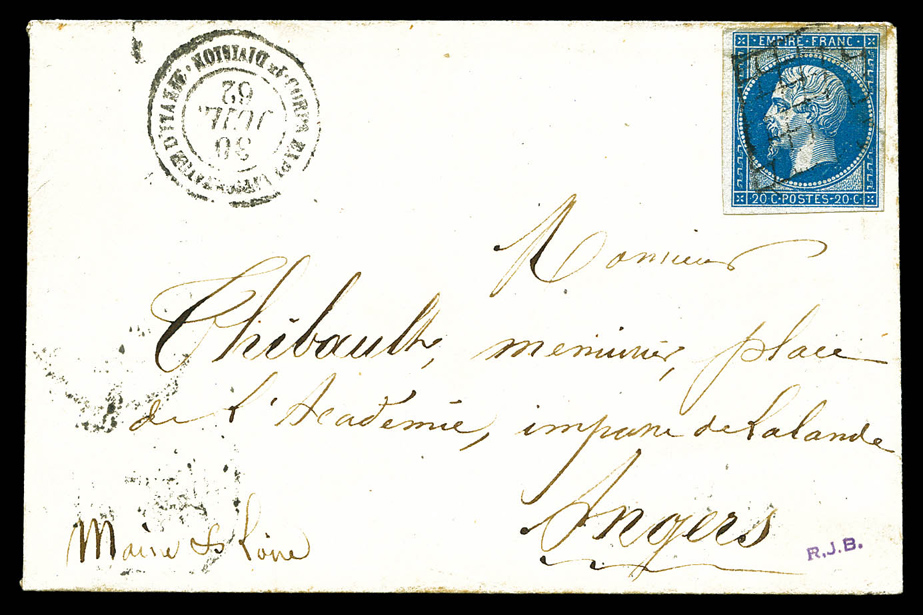 EMPIRE FRANC
20 C·POSTES·20·C
CORPS EXP.
D'ITALIE
DIVISION
30
JUIL.
62
Monsieur
Thibault, menuisier, place
de l'Académie, impasse de Lalande
Angers
Maine & Loire
R.J.B.